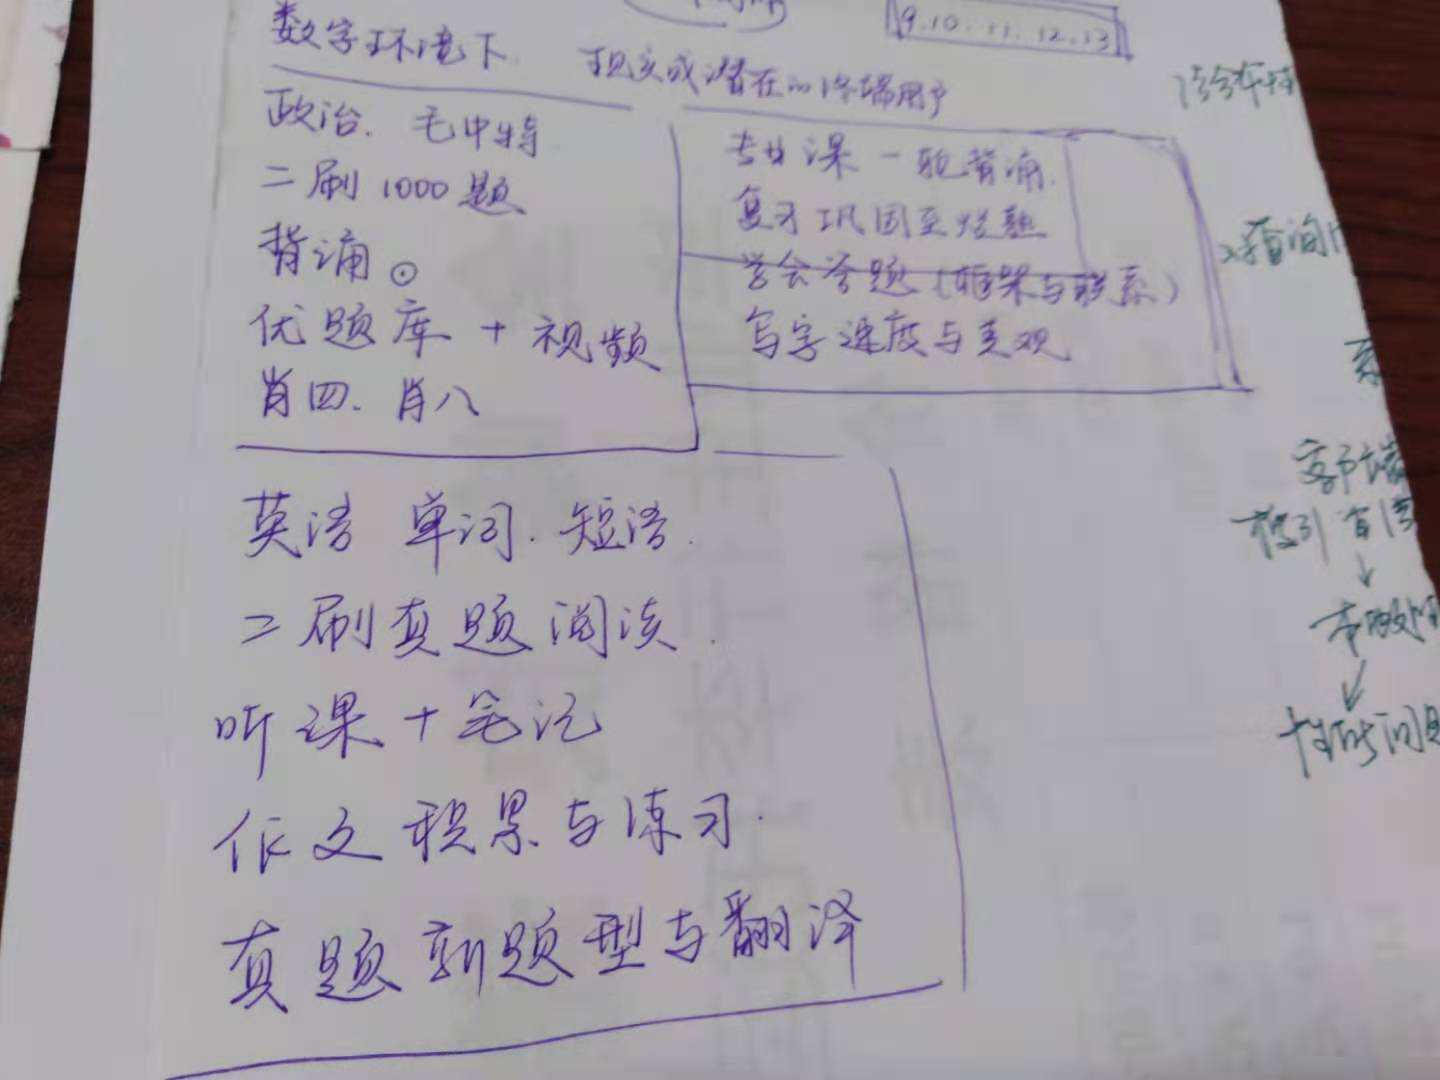 9.10.11.12.13
数字环境下 现实或潜在的终端用户
政治. 毛中特
二刷1000题
背诵。
优题库+视频
肖四.肖八
专业课一轮背诵.
复习巩固至烂熟
学会答题(框架与联系)
写字速度与美观
英语 单词.短语.
二刷真题阅读.
听课+笔记
作文积累与练习.
真题新题型与翻译
查询
客户端
索引
↓
↓